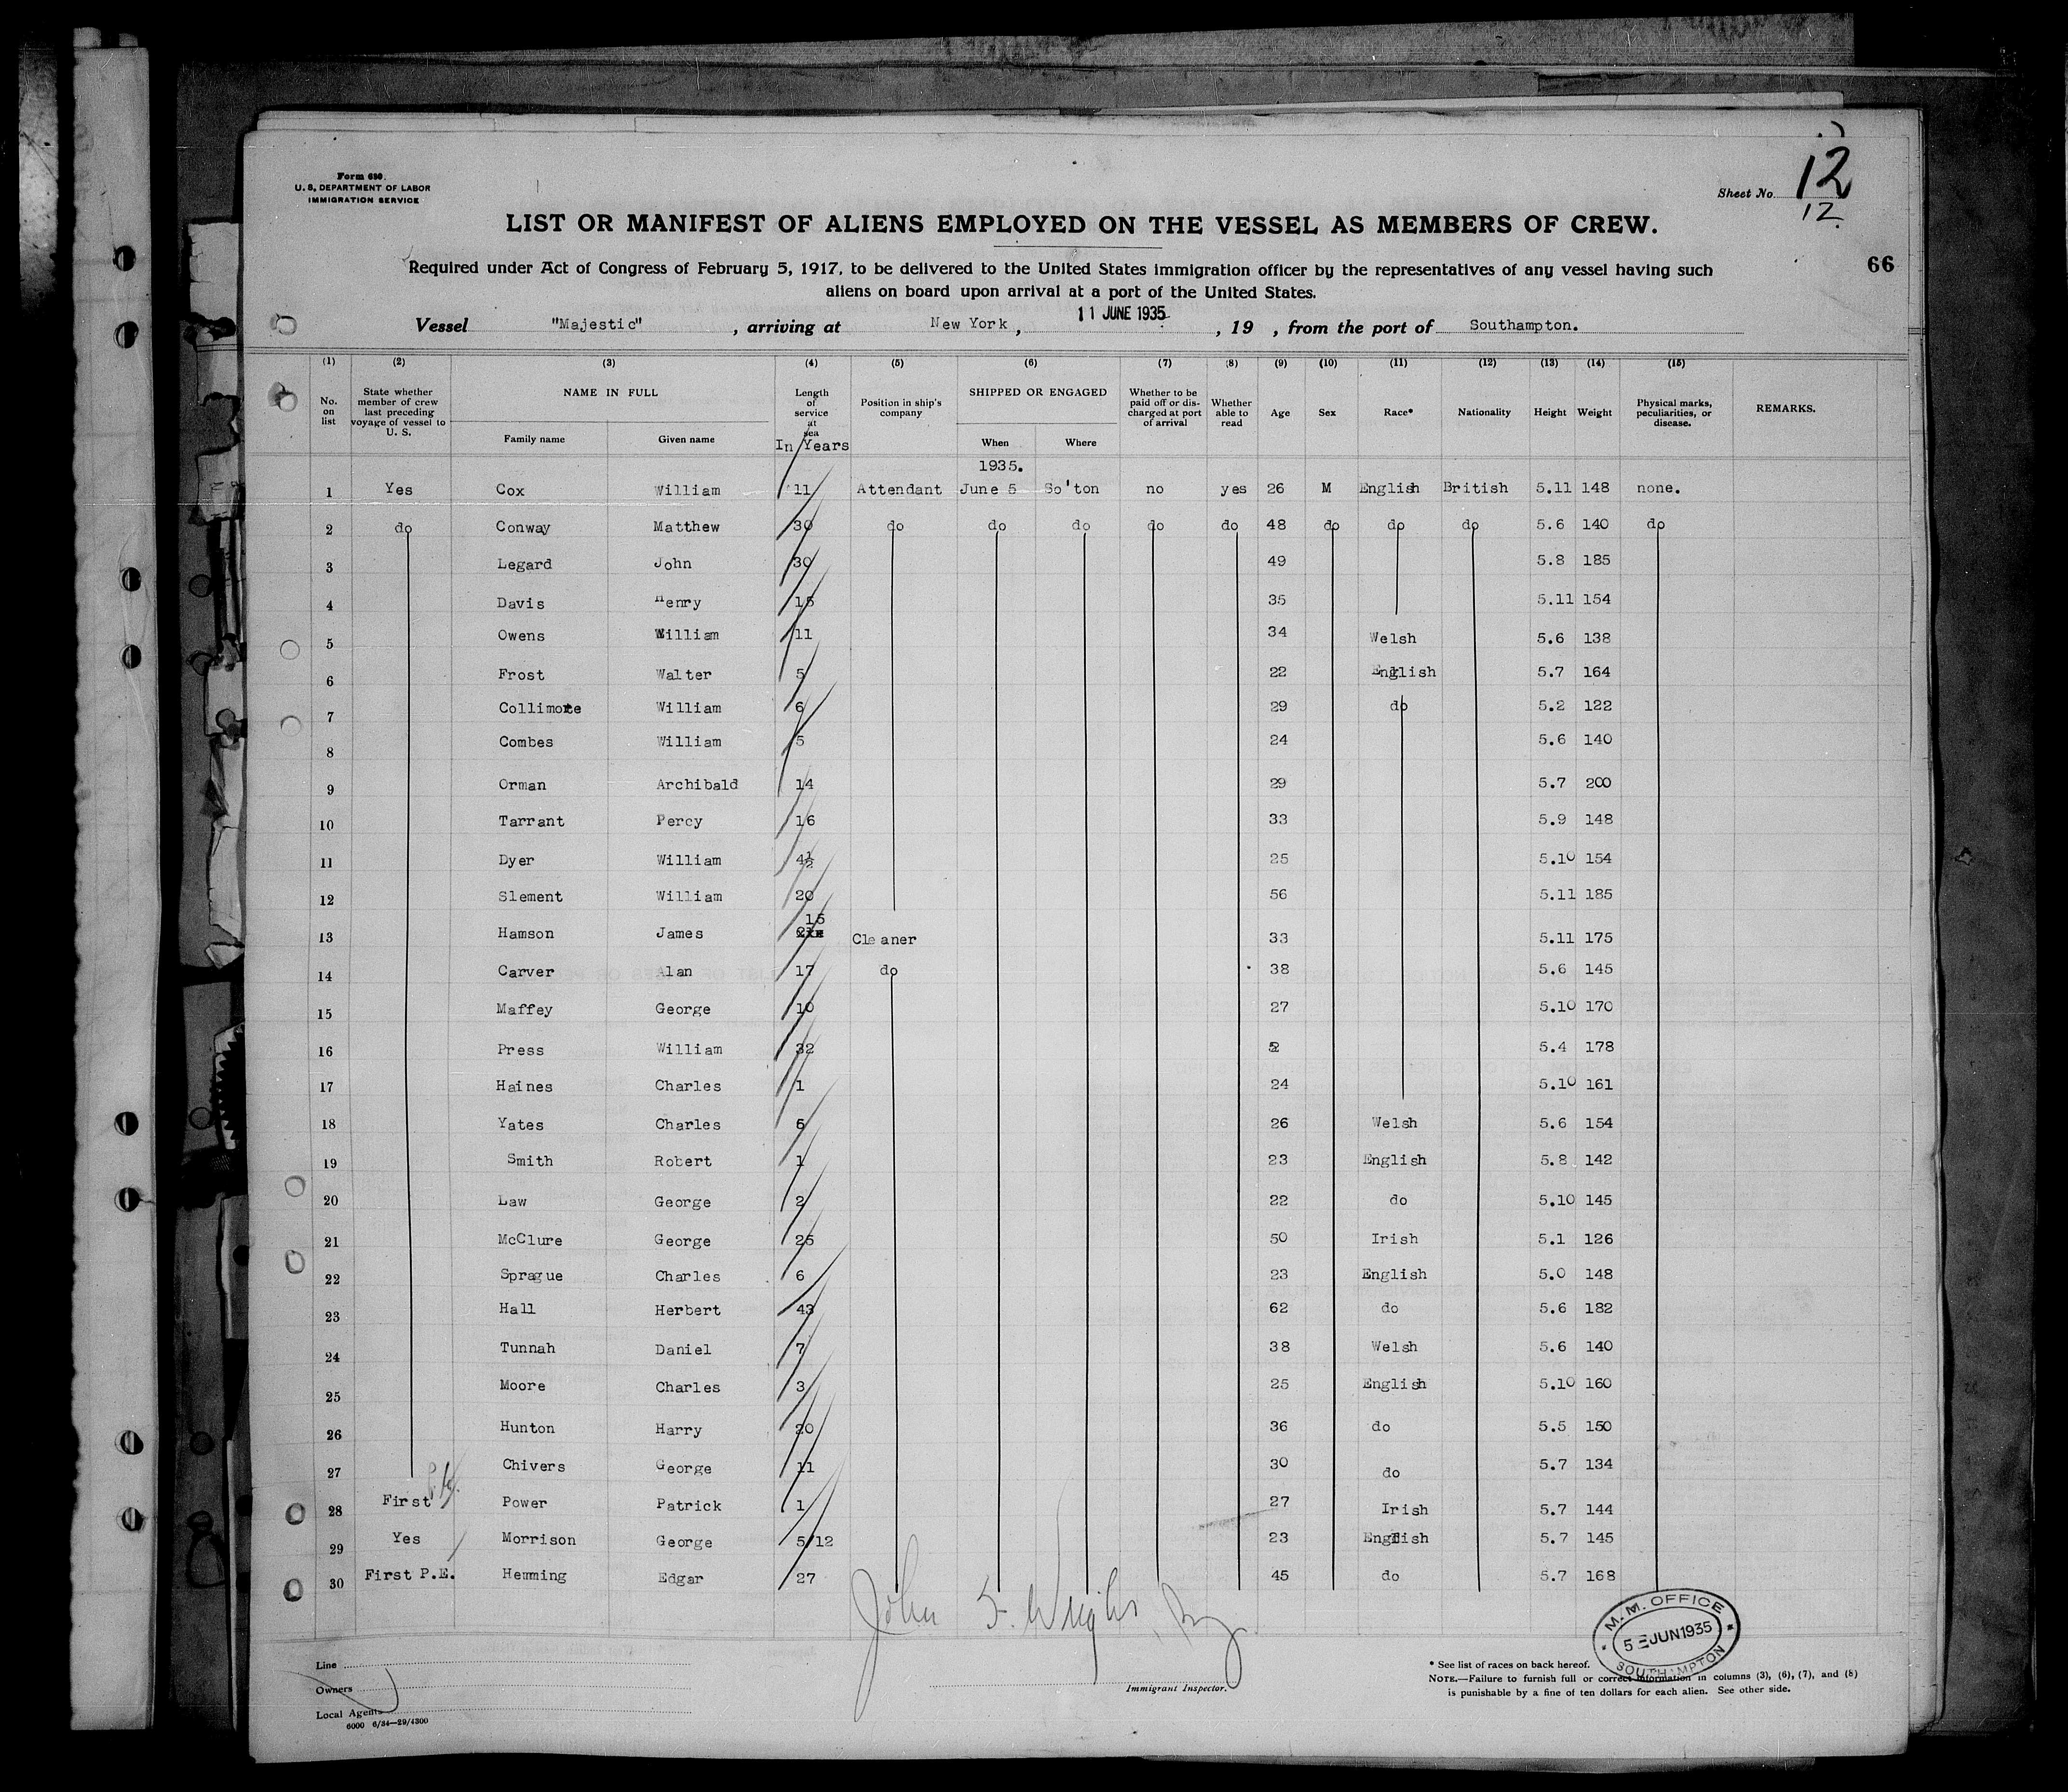 Form 680.
U. S. DEPARTMENT OF LABOR
IMMIGRATION SERVICE
Sheet No. 12
12
LIST OR MANIFEST OF ALIENS EMPLOYED ON THE VESSEL AS MEMBERS OF CREW.
Required under Act of Congress of February 5, 1917, to be delivered to the United States immigration officer by the representatives of any vessel having such
aliens on board upon arrival at a port of the United States.
66
Vessel "Majestic" , arriving at New York , 11 JUNE 1935 , 19 , from the port of Southampton.
(1) (2) (3) (4) (5) (6) (7) (8) (9) (10) (11) (12) (13) (14) (15)
No. on list State whether member of crew last preceding voyage of vessel to U. S. NAME IN FULL Family name Given name Length of service at sea In Years Position in ship's company SHIPPED OR ENGAGED When Where Whether to be paid off or discharged at port of arrival Whether able to read Age Sex Race* Nationality Height Weight Physical marks, peculiarities, or disease. REMARKS.
1935.
1 Yes Cox William 11 Attendant June 5 So'ton no yes 26 M English British 5.11 148 none.
2 do Conway Matthew 30 do do do do do 48 do do do 5.6 140 do
3 Legard John 30 49 5.8 185
4 Davis Henry 15 35 5.11 154
5 Owens William 11 34 Welsh 5.6 138
6 Frost Walter 5 22 English 5.7 164
7 Collimore William 6 29 do 5.2 122
8 Combes William 5 24 5.6 140
9 Orman Archibald 14 29 5.7 200
10 Tarrant Percy 16 33 5.9 148
11 Dyer William 4½ 25 5.10 154
12 Slement William 20 56 5.11 185
13 Hamson James 15 Cleaner 33 5.11 175
14 Carver Alan 17 do 38 5.6 145
15 Maffey George 10 27 5.10 170
16 Press William 32 5.4 178
17 Haines Charles 1 24 5.10 161
18 Yates Charles 5 26 Welsh 5.6 154
19 Smith Robert 1 23 English 5.8 142
20 Law George 2 22 do 5.10 145
21 McClure George 25 50 Irish 5.1 126
22 Sprague Charles 6 23 English 5.0 148
23 Hall Herbert 43 62 do 5.6 182
24 Tunnah Daniel 7 38 Welsh 5.6 140
25 Moore Charles 3 25 English 5.10 160
26 Hunton Harry 20 36 do 5.5 150
27 Chivers George 11 30 do 5.7 134
28 First Power Patrick 1 27 Irish 5.7 144
29 Yes Morrison George 5/12 23 English 5.7 145
30 First P.E. Hemming Edgar 27 45 do 5.7 168
John S. Wright
M.M. OFFICE
5 JUN 1935
SOUTHAMPTON
Line
Owners
Local Agents
6000 6/34—29/4300
Immigrant Inspector.
* See list of races on back hereof.
NOTE.—Failure to furnish full or correct information in columns (3), (6), (7), and (8)
is punishable by a fine of ten dollars for each alien. See other side.